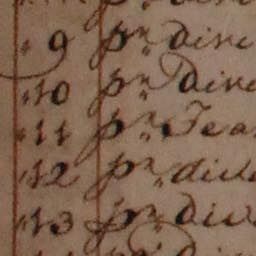 " 9 pr. dive
" 10 pr. Dive
" 11 pr. Tea
" 12 pr. dive
" 13 pr. div